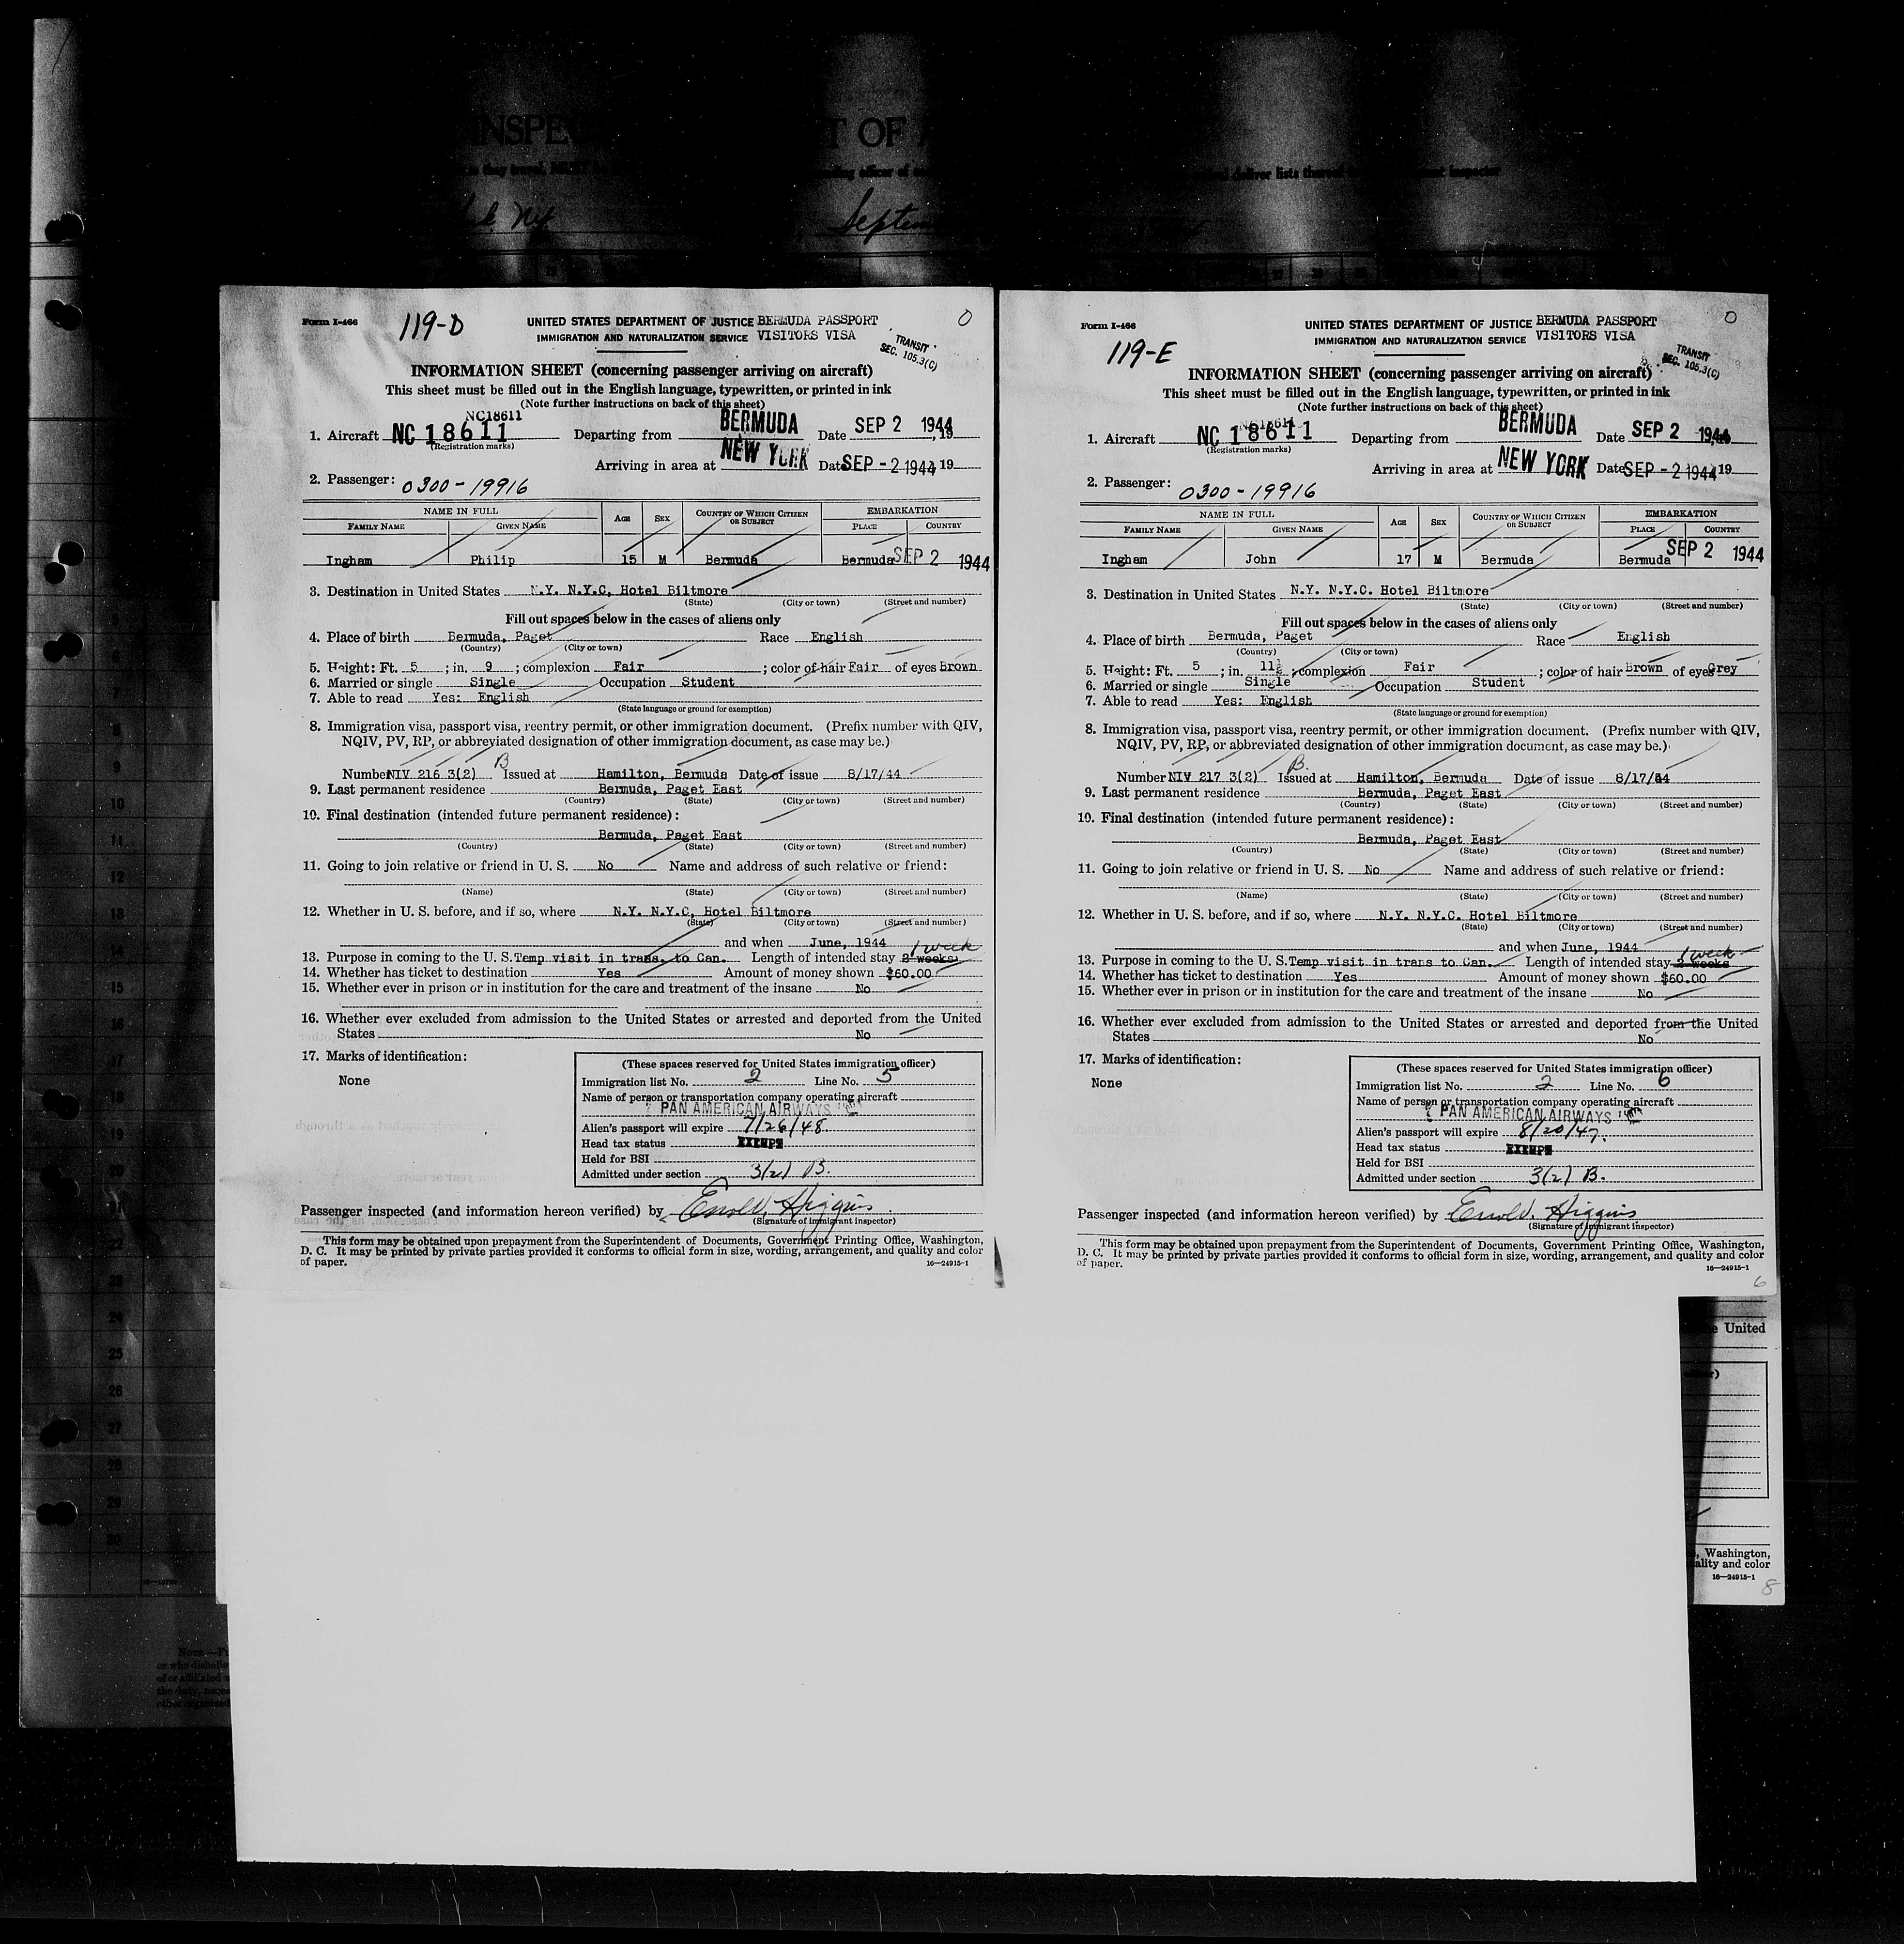 INSPE
T OF
September
Form I-466
119-D
UNITED STATES DEPARTMENT OF JUSTICE BERMUDA PASSPORT
IMMIGRATION AND NATURALIZATION SERVICE VISITORS VISA
TRANSIT
SEC. 105.3(C)
INFORMATION SHEET (concerning passenger arriving on aircraft)
This sheet must be filled out in the English language, typewritten, or printed in ink
(Note further instructions on back of this sheet)
NC18611
1. Aircraft NC 18611 Departing from BERMUDA Date SEP 2 1944, 19
(Registration marks)
Arriving in area at NEW YORK Date SEP - 2 1944 19
2. Passenger: 0300-19916
NAME IN FULL AGE SEX COUNTRY OF WHICH CITIZEN OR SUBJECT EMBARKATION
FAMILY NAME GIVEN NAME PLACE COUNTRY
Ingham Philip 15 M Bermuda Bermuda SEP 2 1944
3. Destination in United States N.Y. N.Y.C, Hotel Biltmore
(State) (City or town) (Street and number)
Fill out spaces below in the cases of aliens only
4. Place of birth Bermuda, Paget Race English
(Country) (City or town)
5. Height: Ft. 5 ; in. 9 ; complexion Fair ; color of hair Fair of eyes Brown
6. Married or single Single Occupation Student
7. Able to read Yes: English
(State language or ground for exemption)
8. Immigration visa, passport visa, reentry permit, or other immigration document. (Prefix number with QIV,
NQIV, PV, RP, or abbreviated designation of other immigration document, as case may be.)
B
Number NIV 216 3(2) Issued at Hamilton, Bermuda Date of issue 8/17/44
9. Last permanent residence Bermuda, Paget East
(Country) (State) (City or town) (Street and number)
10. Final destination (intended future permanent residence):
Bermuda, Paget East
(Country) (State) (City or town) (Street and number)
11. Going to join relative or friend in U. S. No Name and address of such relative or friend:
(Name) (State) (City or town) (Street and number)
12. Whether in U. S. before, and if so, where N.Y. N.Y.C, Hotel Biltmore
(State) (City or town) (Street and number)
and when June, 1944 1 week
13. Purpose in coming to the U. S. Temp visit in trans. to Can. Length of intended stay 2 weeks
14. Whether has ticket to destination Yes Amount of money shown $60.00
15. Whether ever in prison or in institution for the care and treatment of the insane No
16. Whether ever excluded from admission to the United States or arrested and deported from the United
States No
17. Marks of identification:
None
(These spaces reserved for United States immigration officer)
Immigration list No. 2 Line No. 5
Name of person or transportation company operating aircraft
PAN AMERICAN AIRWAYS
Alien's passport will expire 7/26/48.
Head tax status EXEMPT
Held for BSI
Admitted under section 3(2) B.
Passenger inspected (and information hereon verified) by Enold. Higgins
(Signature of immigrant inspector)
This form may be obtained upon prepayment from the Superintendent of Documents, Government Printing Office, Washington,
D. C. It may be printed by private parties provided it conforms to official form in size, wording, arrangement, and quality and color
of paper.
16—24915-1
Form I-466
119-E
UNITED STATES DEPARTMENT OF JUSTICE BERMUDA PASSPORT
IMMIGRATION AND NATURALIZATION SERVICE VISITORS VISA
TRANSIT
SEC. 105.3(C)
INFORMATION SHEET (concerning passenger arriving on aircraft)
This sheet must be filled out in the English language, typewritten, or printed in ink
(Note further instructions on back of this sheet)
1. Aircraft NC 18611 Departing from BERMUDA Date SEP 2 1944
(Registration marks)
Arriving in area at NEW YORK Date SEP - 2 1944 19
2. Passenger: 0300-19916
NAME IN FULL AGE SEX COUNTRY OF WHICH CITIZEN OR SUBJECT EMBARKATION
FAMILY NAME GIVEN NAME PLACE COUNTRY
Ingham John 17 M Bermuda Bermuda SEP 2 1944
3. Destination in United States N.Y. N.Y.C. Hotel Biltmore
(State) (City or town) (Street and number)
Fill out spaces below in the cases of aliens only
4. Place of birth Bermuda, Paget Race English
(Country) (City or town)
5. Height: Ft. 5 ; in. 11½ ; complexion Fair ; color of hair Brown of eyes Grey
6. Married or single Single Occupation Student
7. Able to read Yes: English
(State language or ground for exemption)
8. Immigration visa, passport visa, reentry permit, or other immigration document. (Prefix number with QIV,
NQIV, PV, RP, or abbreviated designation of other immigration document, as case may be.)
B.
Number NIV 217 3(2) Issued at Hamilton, Bermuda Date of issue 8/17/44
9. Last permanent residence Bermuda, Paget East
(Country) (State) (City or town) (Street and number)
10. Final destination (intended future permanent residence):
Bermuda, Paget East
(Country) (State) (City or town) (Street and number)
11. Going to join relative or friend in U. S. No Name and address of such relative or friend:
(Name) (State) (City or town) (Street and number)
12. Whether in U. S. before, and if so, where N.Y. N.Y.C. Hotel Biltmore
(State) (City or town) (Street and number)
and when June, 1944 1 week
13. Purpose in coming to the U. S. Temp visit in trans to Can. Length of intended stay 2 weeks
14. Whether has ticket to destination Yes Amount of money shown $60.00
15. Whether ever in prison or in institution for the care and treatment of the insane No
16. Whether ever excluded from admission to the United States or arrested and deported from the United
States No
17. Marks of identification:
None
(These spaces reserved for United States immigration officer)
Immigration list No. 2 Line No. 6
Name of person or transportation company operating aircraft
PAN AMERICAN AIRWAYS
Alien's passport will expire 8/20/47.
Head tax status EXEMPT
Held for BSI
Admitted under section 3(2) B.
Passenger inspected (and information hereon verified) by Enold. Higgins
(Signature of immigrant inspector)
This form may be obtained upon prepayment from the Superintendent of Documents, Government Printing Office, Washington,
D. C. It may be printed by private parties provided it conforms to official form in size, wording, arrangement, and quality and color
of paper.
16—24915-1
6
United
, Washington,
ality and color
16—24915-1
8